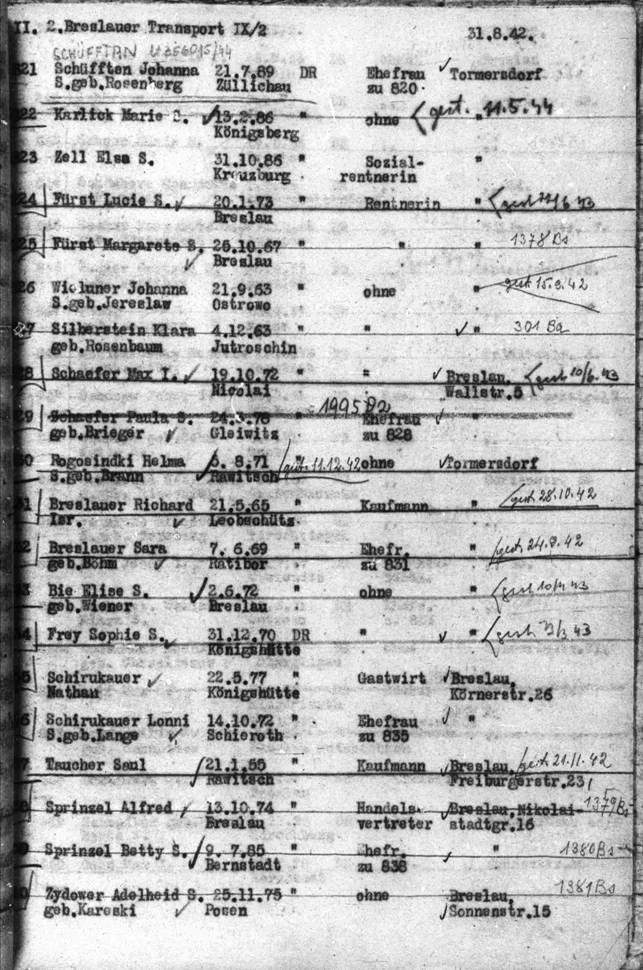 II. 2.Breslauer Transport IX/2 31.8.42.
SCHÜFFTAN
21 Schüfften Johanna 21.7.89 DR Ehefrau Tormersdorf
S.geb.Rosenberg Züllichau zu 820
22 Karlick Marie S. 13.2.86 " ohne " gest. 11.5.44
Königsberg
23 Zell Else S. 31.10.86 " Sozial- "
Kreuzburg rentnerin
24 Fürst Lucie S. 20.1.73 " Rentnerin "
Breslau
25 Fürst Margarete S. 26.10.67 " " " 1378 Bs
Breslau
26 Johanna 21.9.63 " ohne " gest. 15.9.42
S.geb.Jereslaw Ostrowo
27 Silberstein Klara 4.12.63 " " " 301 Ba
geb.Rosenbaum Jutroschin
28 Schaefer Max I. 19.10.72 " " Breslau, gest 10/6.43
Nicolai Wallstr.5
29 Schaefer Paula S. 24.3.78 " Ehefrau "
geb.Brieger Gleiwitz zu 828
30 Rogosindki Helma 5.8.71 gest. 11.12.42 ohne Tormersdorf
S.geb.Brann Rawitsch
31 Breslauer Richard 21.5.65 " Kaufmann " gest. 28.10.42
Isr. Leobschütz
32 Breslauer Sara 7. 6.69 " Ehefr. "
geb.Böhm Ratibor zu 831
33 Bie Elise S. 2.6.72 " ohne "
geb.Wiener Breslau
34 Frey Sophie S. 31.12.70 DR " "
Königshütte
35 Schirukauer 22.5.77 " Gastwirt Breslau,
Nathan Königshütte Körnerstr.26
36 Schirukauer Lonni 14.10.72 " Ehefrau "
S.geb.Lange Schieroth zu 835
37 Taucher Saul 21.1.55 " Kaufmann Breslau, gest. 21.11.42
Rawitsch Freiburgerstr.23
38 Sprinzel Alfred 13.10.74 " Handels- Breslau,Nikolai- 1379 Bs
Breslau vertreter stadtgr.16
39 Sprinzel Betty S. 9. 7.85 " Ehefr. " 1380 Bs
Bernstadt zu 838
40 Zydower Adelheid S. 25.11.75 " ohne Breslau, 1381 Bs
geb.Kareski Posen Sonnenstr.15